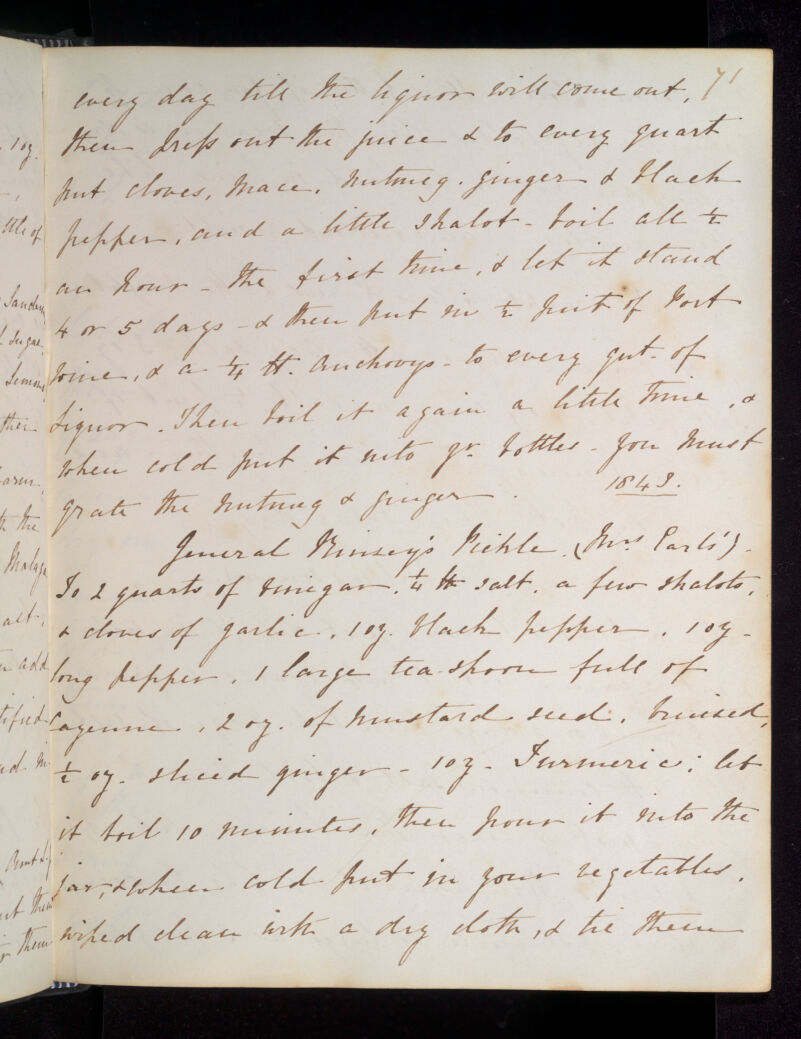 71
every day till the liquor will come out,
then press out the juice & to every quart
put cloves, Mace, Nutmeg, ginger & black
pepper, and a little shalot - boil all ½
an hour - the first time, & let it stand
4 or 5 days - & then put in ½ pint of Port
Wine, & a ¼ lb. Anchovys - to every qut. of
Liquor. Then boil it again a little time, &
when cold put it into yr. bottles - you must
grate the Nutmeg & ginger.
1843.
General Pickle. (Mrs. Earls')
To 2 quarts of vinegar, ¼ lb salt, a few shalots,
& cloves of garlic, 1 oz. black pepper, 1 oz -
long pepper, 1 large tea-spoon full of
Cayenne, 2 oz. of mustard seed, bruised,
½ oz. sliced ginger - 1 oz - Turmeric; let
it boil 10 minutes, then pour it into the
jar, & when cold put in your vegetables,
wiped clean with a dry cloth, & tie them